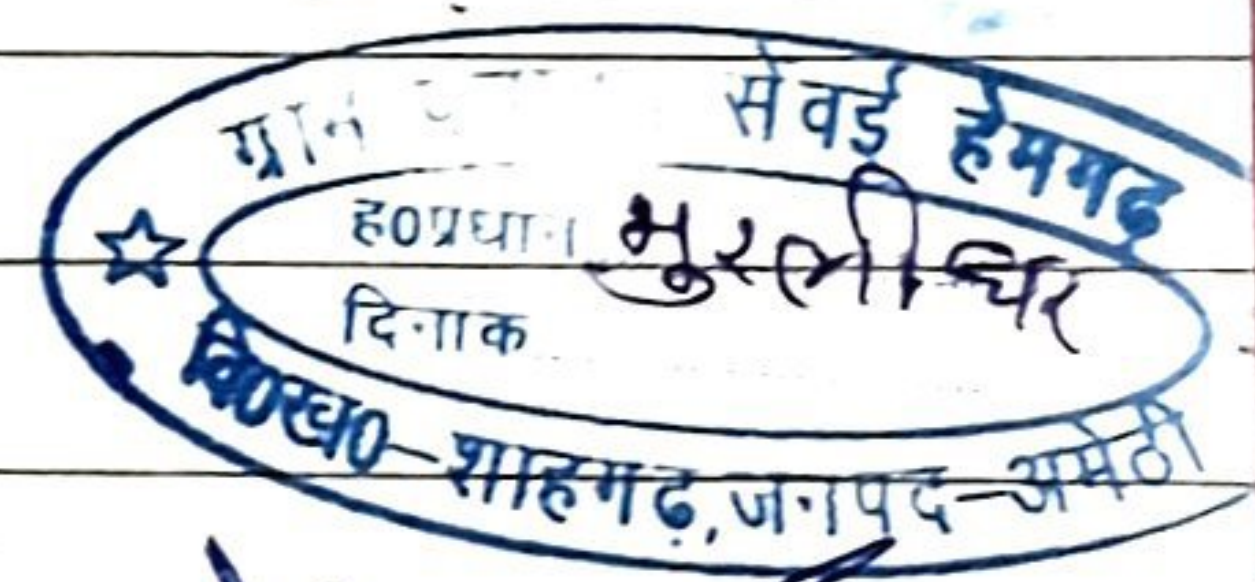 ग्राम सेवई हेमगढ़
ह०प्रधान मुरलीधर
दिनांक
वि०ख०-शाहगढ़, जनपद-अमेठी